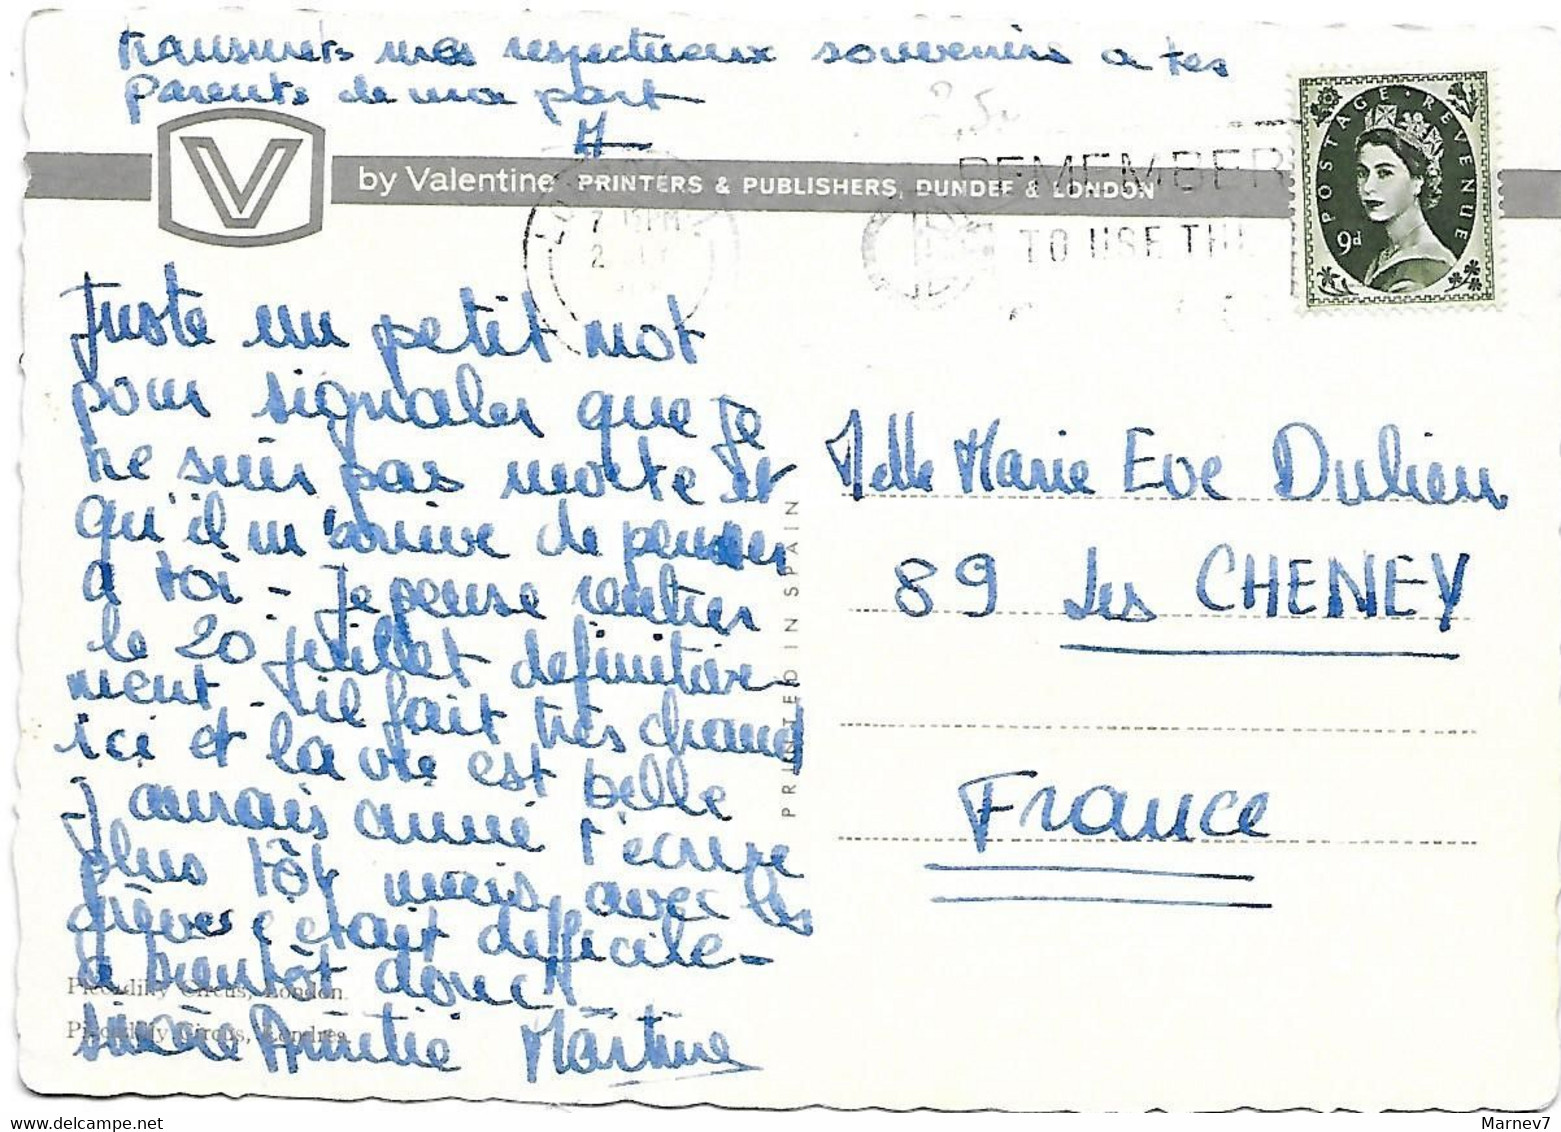 transmets mes respectueux souvenirs a tes
parents de ma part
M
V by Valentine PRINTERS & PUBLISHERS, DUNDEE & LONDON
REMEMBER
TO USE THE
7 15PM
2
POSTAGE REVENUE
9d
Juste un petit mot
pour signaler que je
ne suis pas morte et
qu'il m'arrive de penser
a toi - Je pense rentrer
le 20 juillet definitive
ment - il fait très chaud
ici et la vie est belle
J'aurais aimé t'écrire
plus tôt mais, avec les
grèves c'était difficile -
a bientôt donc
sincère Amitié Martine
Piccadilly Circus, London.
Piccadilly Circus, Londres.
PRINTED IN SPAIN
Melle Marie Eve Dulieu
89 Les CHENEY
France
Marnev7
www.delcampe.net